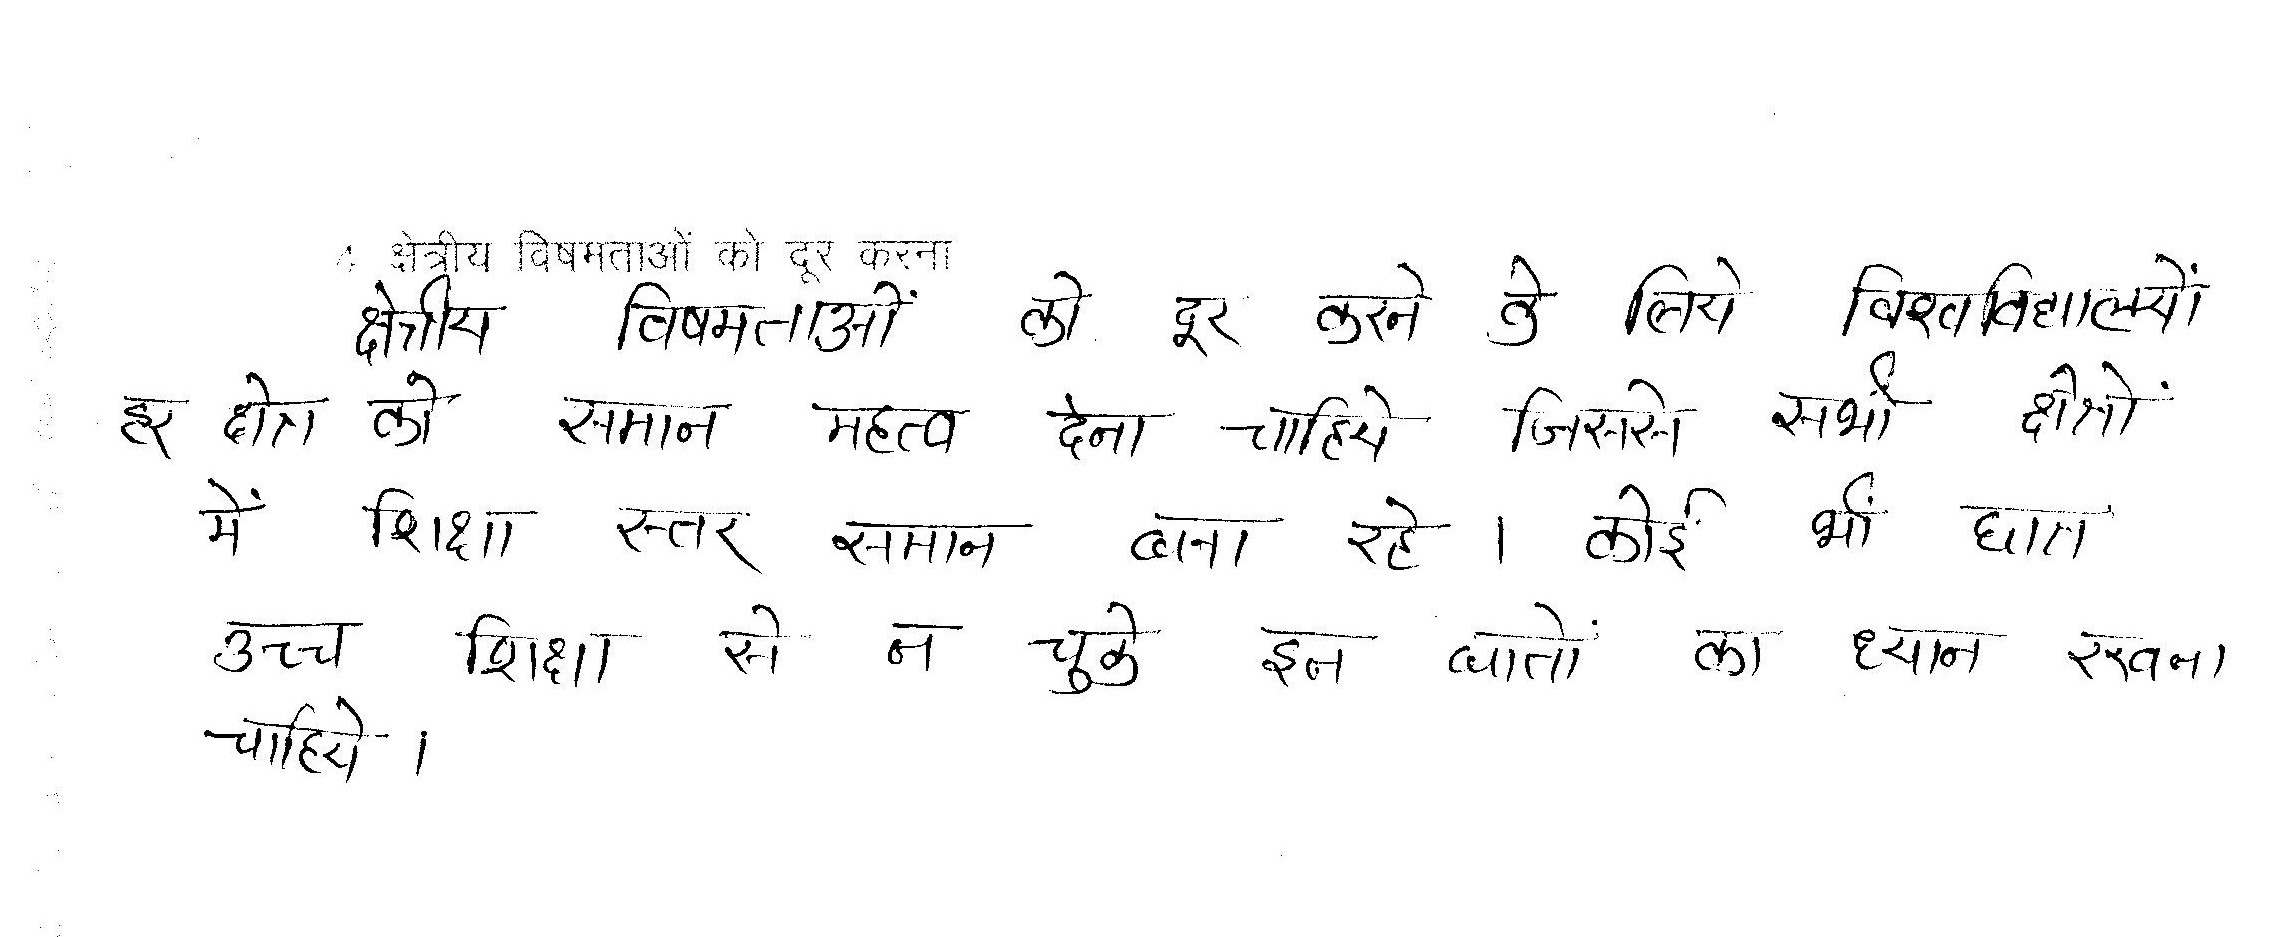 4 क्षेत्रीय विषमताओं को दूर करना
क्षेत्रीय विषमताओं को दूर करने के लिये विश्वविद्यालयों
हर क्षेत्र को समान महत्व देना चाहिये जिससे सभी क्षेत्रों
में शिक्षा स्तर समान बना रहे । कोई भी छात्र
उच्च शिक्षा से न चुके इन बातों का ध्यान रखना
चाहिये ।